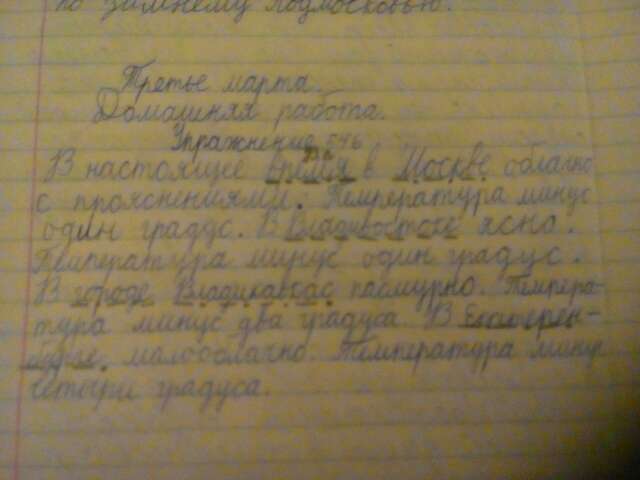 по зимнему Подмосковью.
Третье марта.
Домашняя работа.
Упражнение 546
В настоящее время в Москве облачно
с прояснениями. Температура минус
один граддс. В Владивостоке ясно.
Температура минус один градус.
В городе Владикавказ пасмурно. Темпера-
тура минус два градуса. В Екатерен-
бурге малооблачно. Температура мину
четыри градуса.